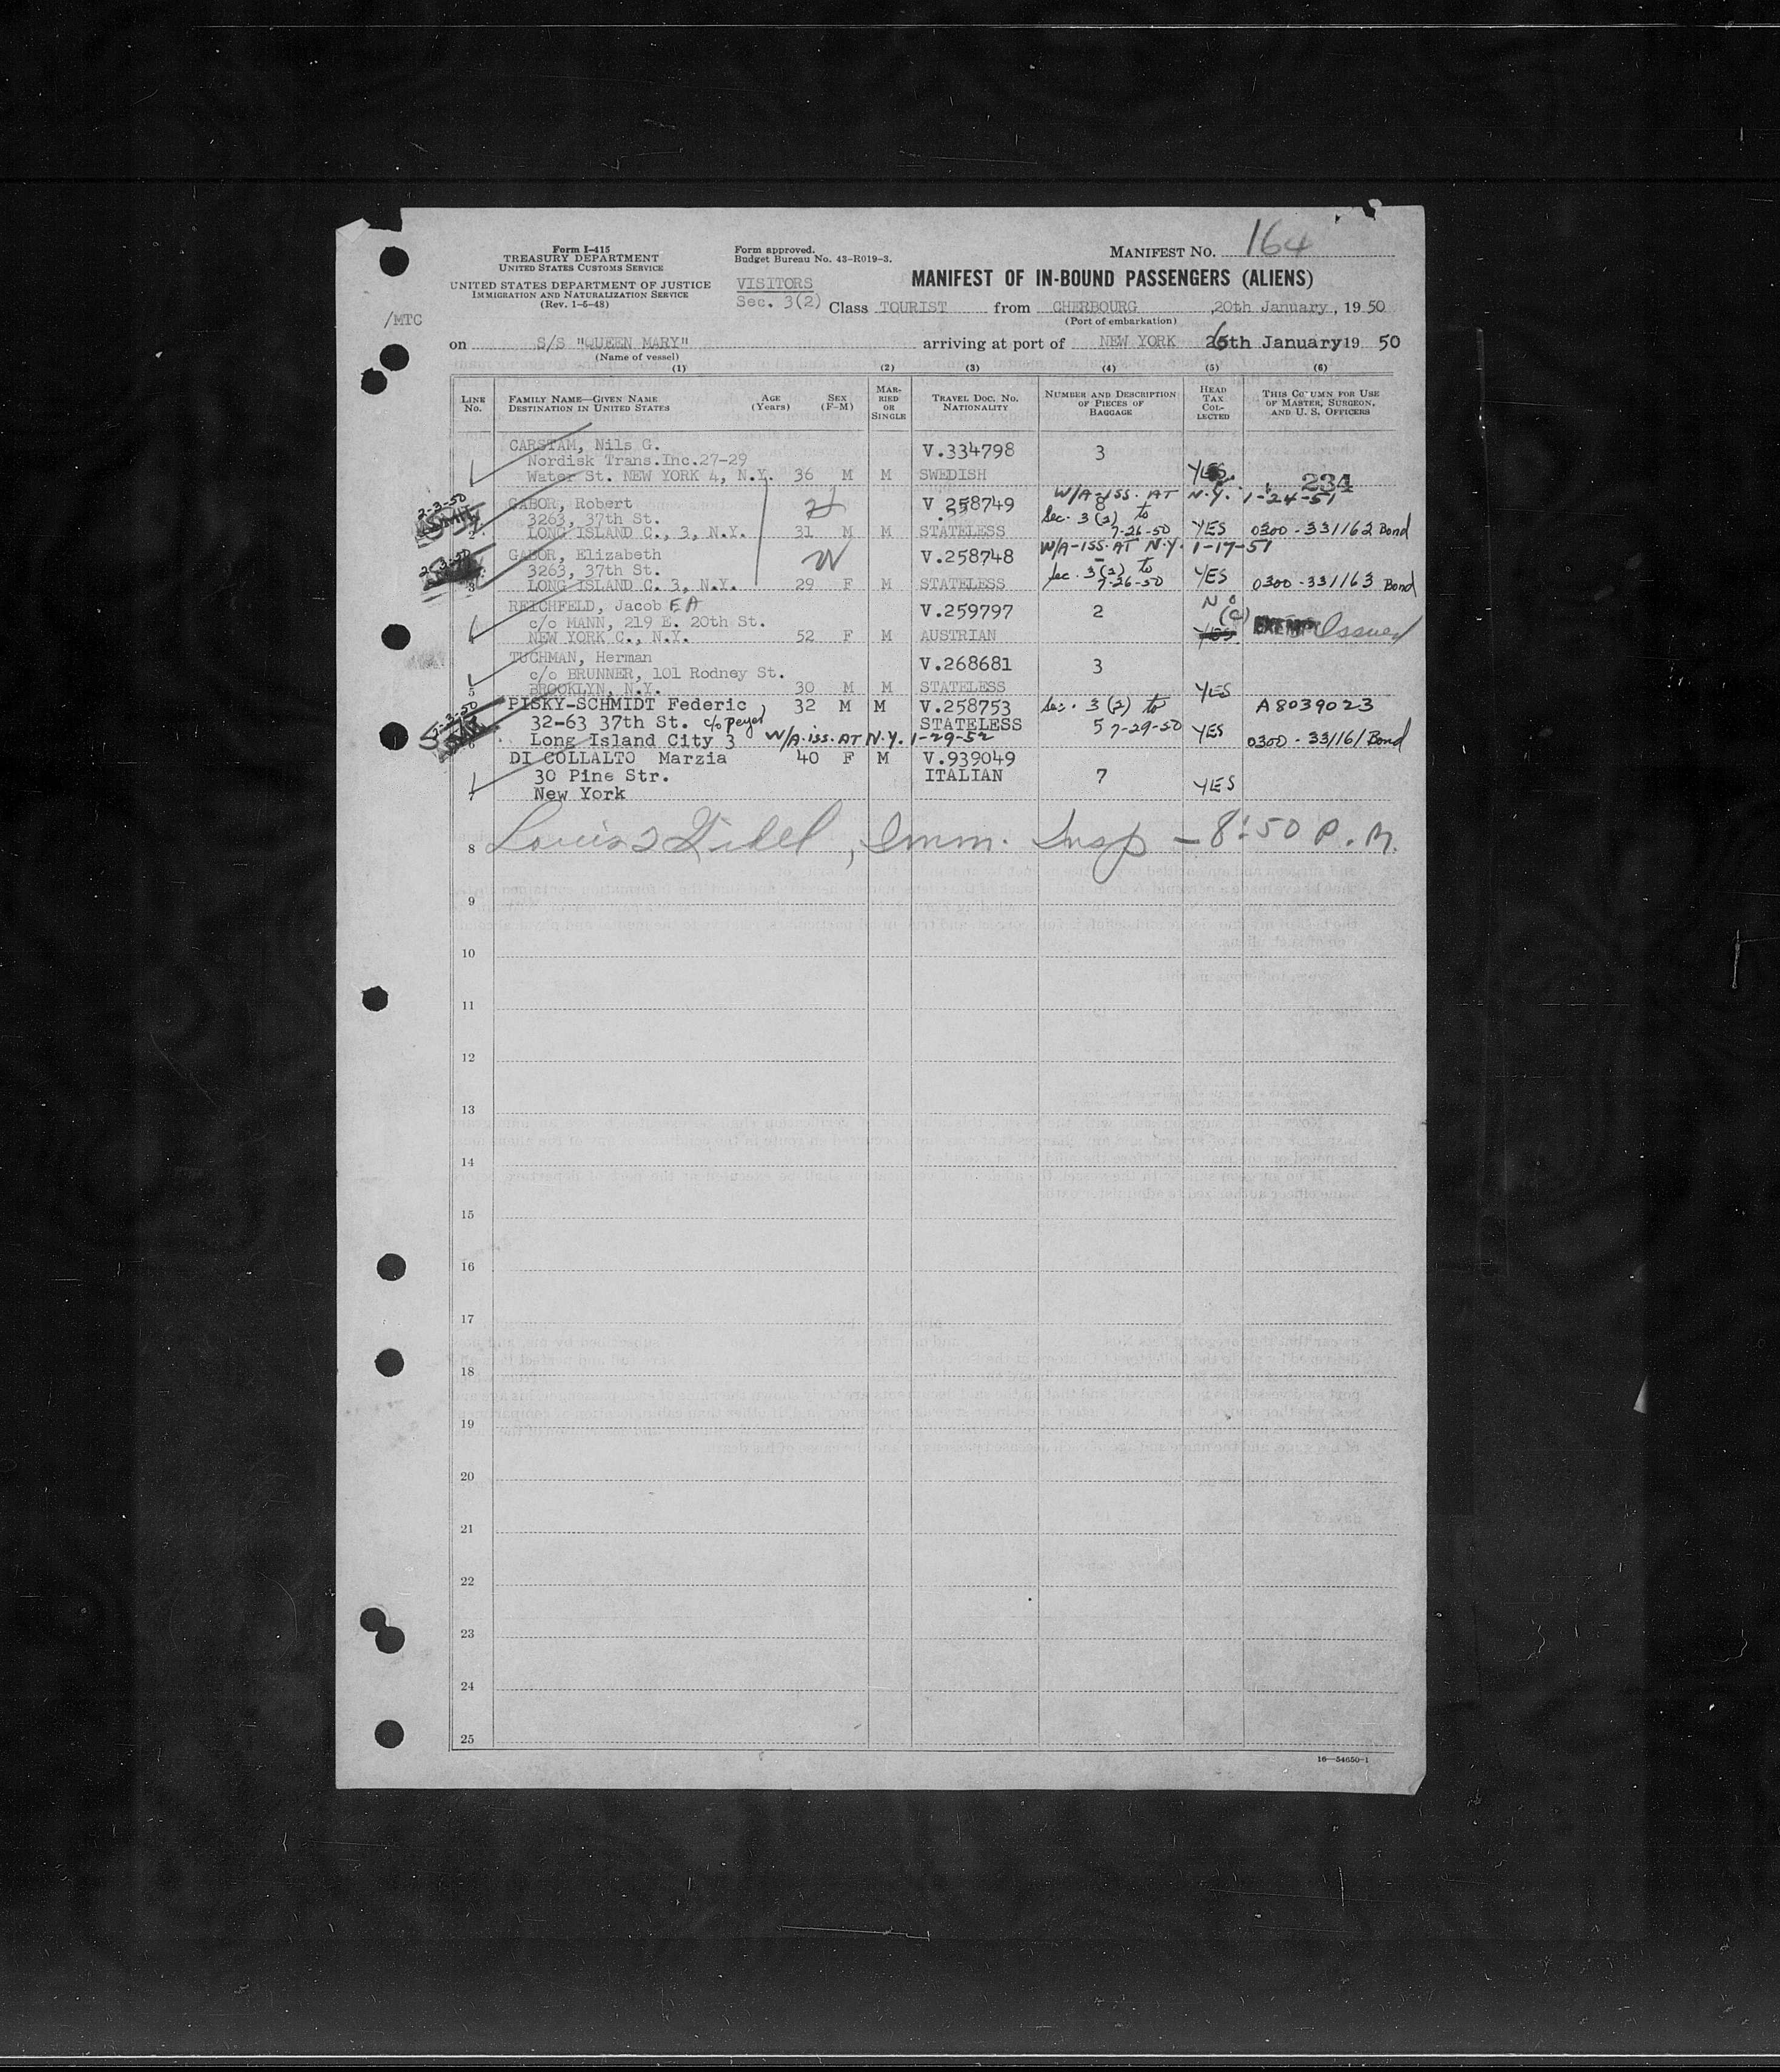 Form I-415
TREASURY DEPARTMENT
UNITED STATES CUSTOMS SERVICE
UNITED STATES DEPARTMENT OF JUSTICE
IMMIGRATION AND NATURALIZATION SERVICE
(Rev. 1-5-48)
/MTC
Form approved.
Budget Bureau No. 43-R019-3.
VISITORS
Sec. 3(2)
MANIFEST NO. 164
MANIFEST OF IN-BOUND PASSENGERS (ALIENS)
Class TOURIST from CHERBOURG ,20th January, 1950
(Port of embarkation)
on S/S "QUEEN MARY" arriving at port of NEW YORK 26th January 19 50
(Name of vessel)
(1) (2) (3) (4) (5) (6)
LINE No. FAMILY NAME—GIVEN NAME DESTINATION IN UNITED STATES AGE (Years) SEX (F-M) MARRIED OR SINGLE TRAVEL DOC. NO. NATIONALITY NUMBER AND DESCRIPTION OF PIECES OF BAGGAGE HEAD TAX COLLECTED THIS COLUMN FOR USE OF MASTER, SURGEON, AND U. S. OFFICERS
CARSTAM, Nils G. V.334798 3
Nordisk Trans.Inc.27-29
Water St. NEW YORK 4, N.Y. 36 M M SWEDISH YES 234
2-3-50 GABOR, Robert V 258749 8 W/A-iss. AT N.Y. 1-24-51
3263, 37th St. Sec. 3(2) to
2 LONG ISLAND C., 3, N.Y. 31 M M STATELESS 7-26-50 YES 0300-331162 Bond
GABOR, Elizabeth V.258748 W/A-iss. AT N.Y. 1-17-51
3263, 37th St. Sec. 3(2) to
3 LONG ISLAND C. 3, N.Y. 29 F M STATELESS 7-26-50 YES 0300-331163 Bond
REICHFELD, Jacob EA V.259797 2 No
c/o MANN, 219 E. 20th St. (C) EXEMPT Issued
NEW YORK C., N.Y. 52 F M AUSTRIAN YES
TUCHMAN, Herman V.268681 3
c/o BRUNNER, 101 Rodney St.
5 BROOKLYN, N.Y. 30 M M STATELESS YES
PISKY-SCHMIDT Federic 32 M M V.258753 Sec. 3(2) to A8039023
32-63 37th St. c/o peyer STATELESS 5 7-29-50 YES
6 Long Island City 3 W/A.iss. AT N.Y. 1-29-52 0300-33161 Bond
DI COLLALTO Marzia 40 F M V.939049
30 Pine Str. ITALIAN 7 YES
7 New York
8 Louis Fidel, Imm. Insp - 8:50 P.M.
9
10
11
12
13
14
15
16
17
18
19
20
21
22
23
24
25
16—54650-1